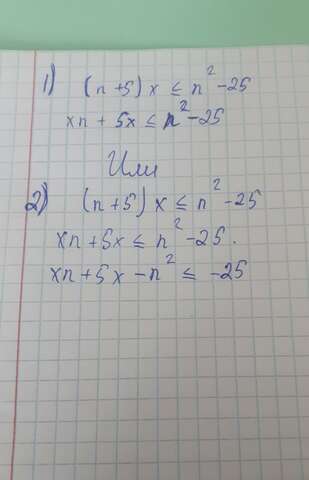 1) (n+5)x ≤ n² -25
xn + 5x ≤ n² -25
Или
2) (n+5)x ≤ n² -25
xn+5x ≤ n² -25.
xn+5x -n² ≤ -25